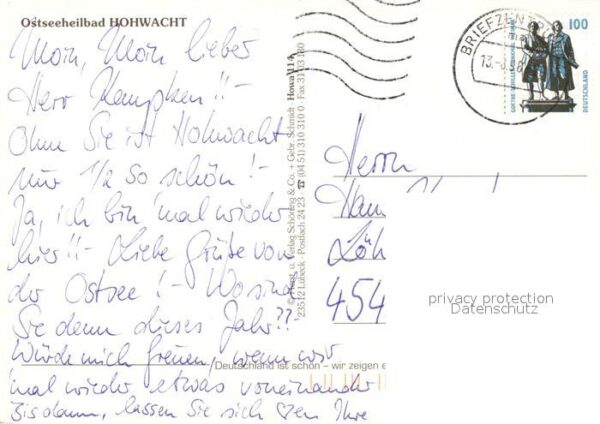 Ostseeheilbad HOHWACHT
Moin, Moin lieber
Herr Kempken!!-
Ohne Sie ist Hohwacht
nur 1/2 so schön!-
Ja, ich bin 'mal wieder
hier!!- Liebe Grüße von
der Ostsee!- Wo sind
Sie denn dieses Jahr??
Würde mich freuen, wenn wir
'mal wieder etwas voneinander
Bis dann, lassen Sie sich ♡en Ihre
© Kunst- u. Verlag Schöning & Co. + Gebr. Schmidt Howa 114
23512 Lübeck · Postfach 24 23 · ☎ (04 51) 310 310 0 · Fax 31 03 180
Deutschland ist schön – wir zeigen e
BRIEFZENTR
13.-8.98
100
DEUTSCHLAND
GOETHE-SCHILLER-DENKMAL
Herrn
Löh
454
privacy protection
Datenschutz